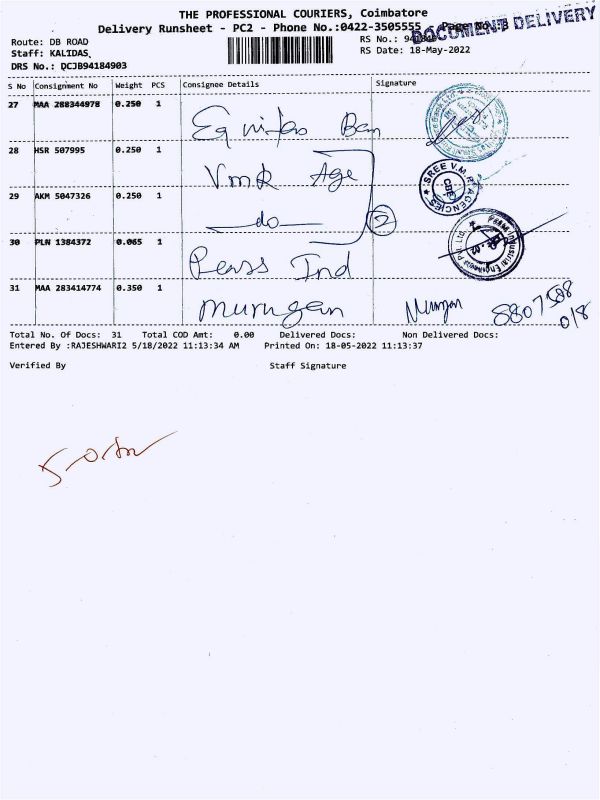 THE PROFESSIONAL COURIERS, Coimbatore
Delivery Runsheet - PC2 - Phone No.:0422-3505555 Page No.
DOCUMENT DELIVERY
Route: DB ROAD
RS No.:
Staff: KALIDAS
RS Date: 18-May-2022
DRS No.: DCJB94184903
S No Consignment No Weight PCS Consignee Details Signature
27 MAA 288344978 0.250 1 Equitas Ban
28 HSR 507995 0.250 1 Vmk Age
29 AKM 5047326 0.250 1 do 2
SREE V.M.R. AGENCIES CBE
30 PLN 1384372 0.065 1 Pearss Ind
31 MAA 283414774 0.350 1 murugan Murugan 8807588
018
Total No. Of Docs: 31 Total COD Amt: 0.00 Delivered Docs: Non Delivered Docs:
Entered By :RAJESHWARI2 5/18/2022 11:13:34 AM Printed On: 18-05-2022 11:13:37
Verified By Staff Signature